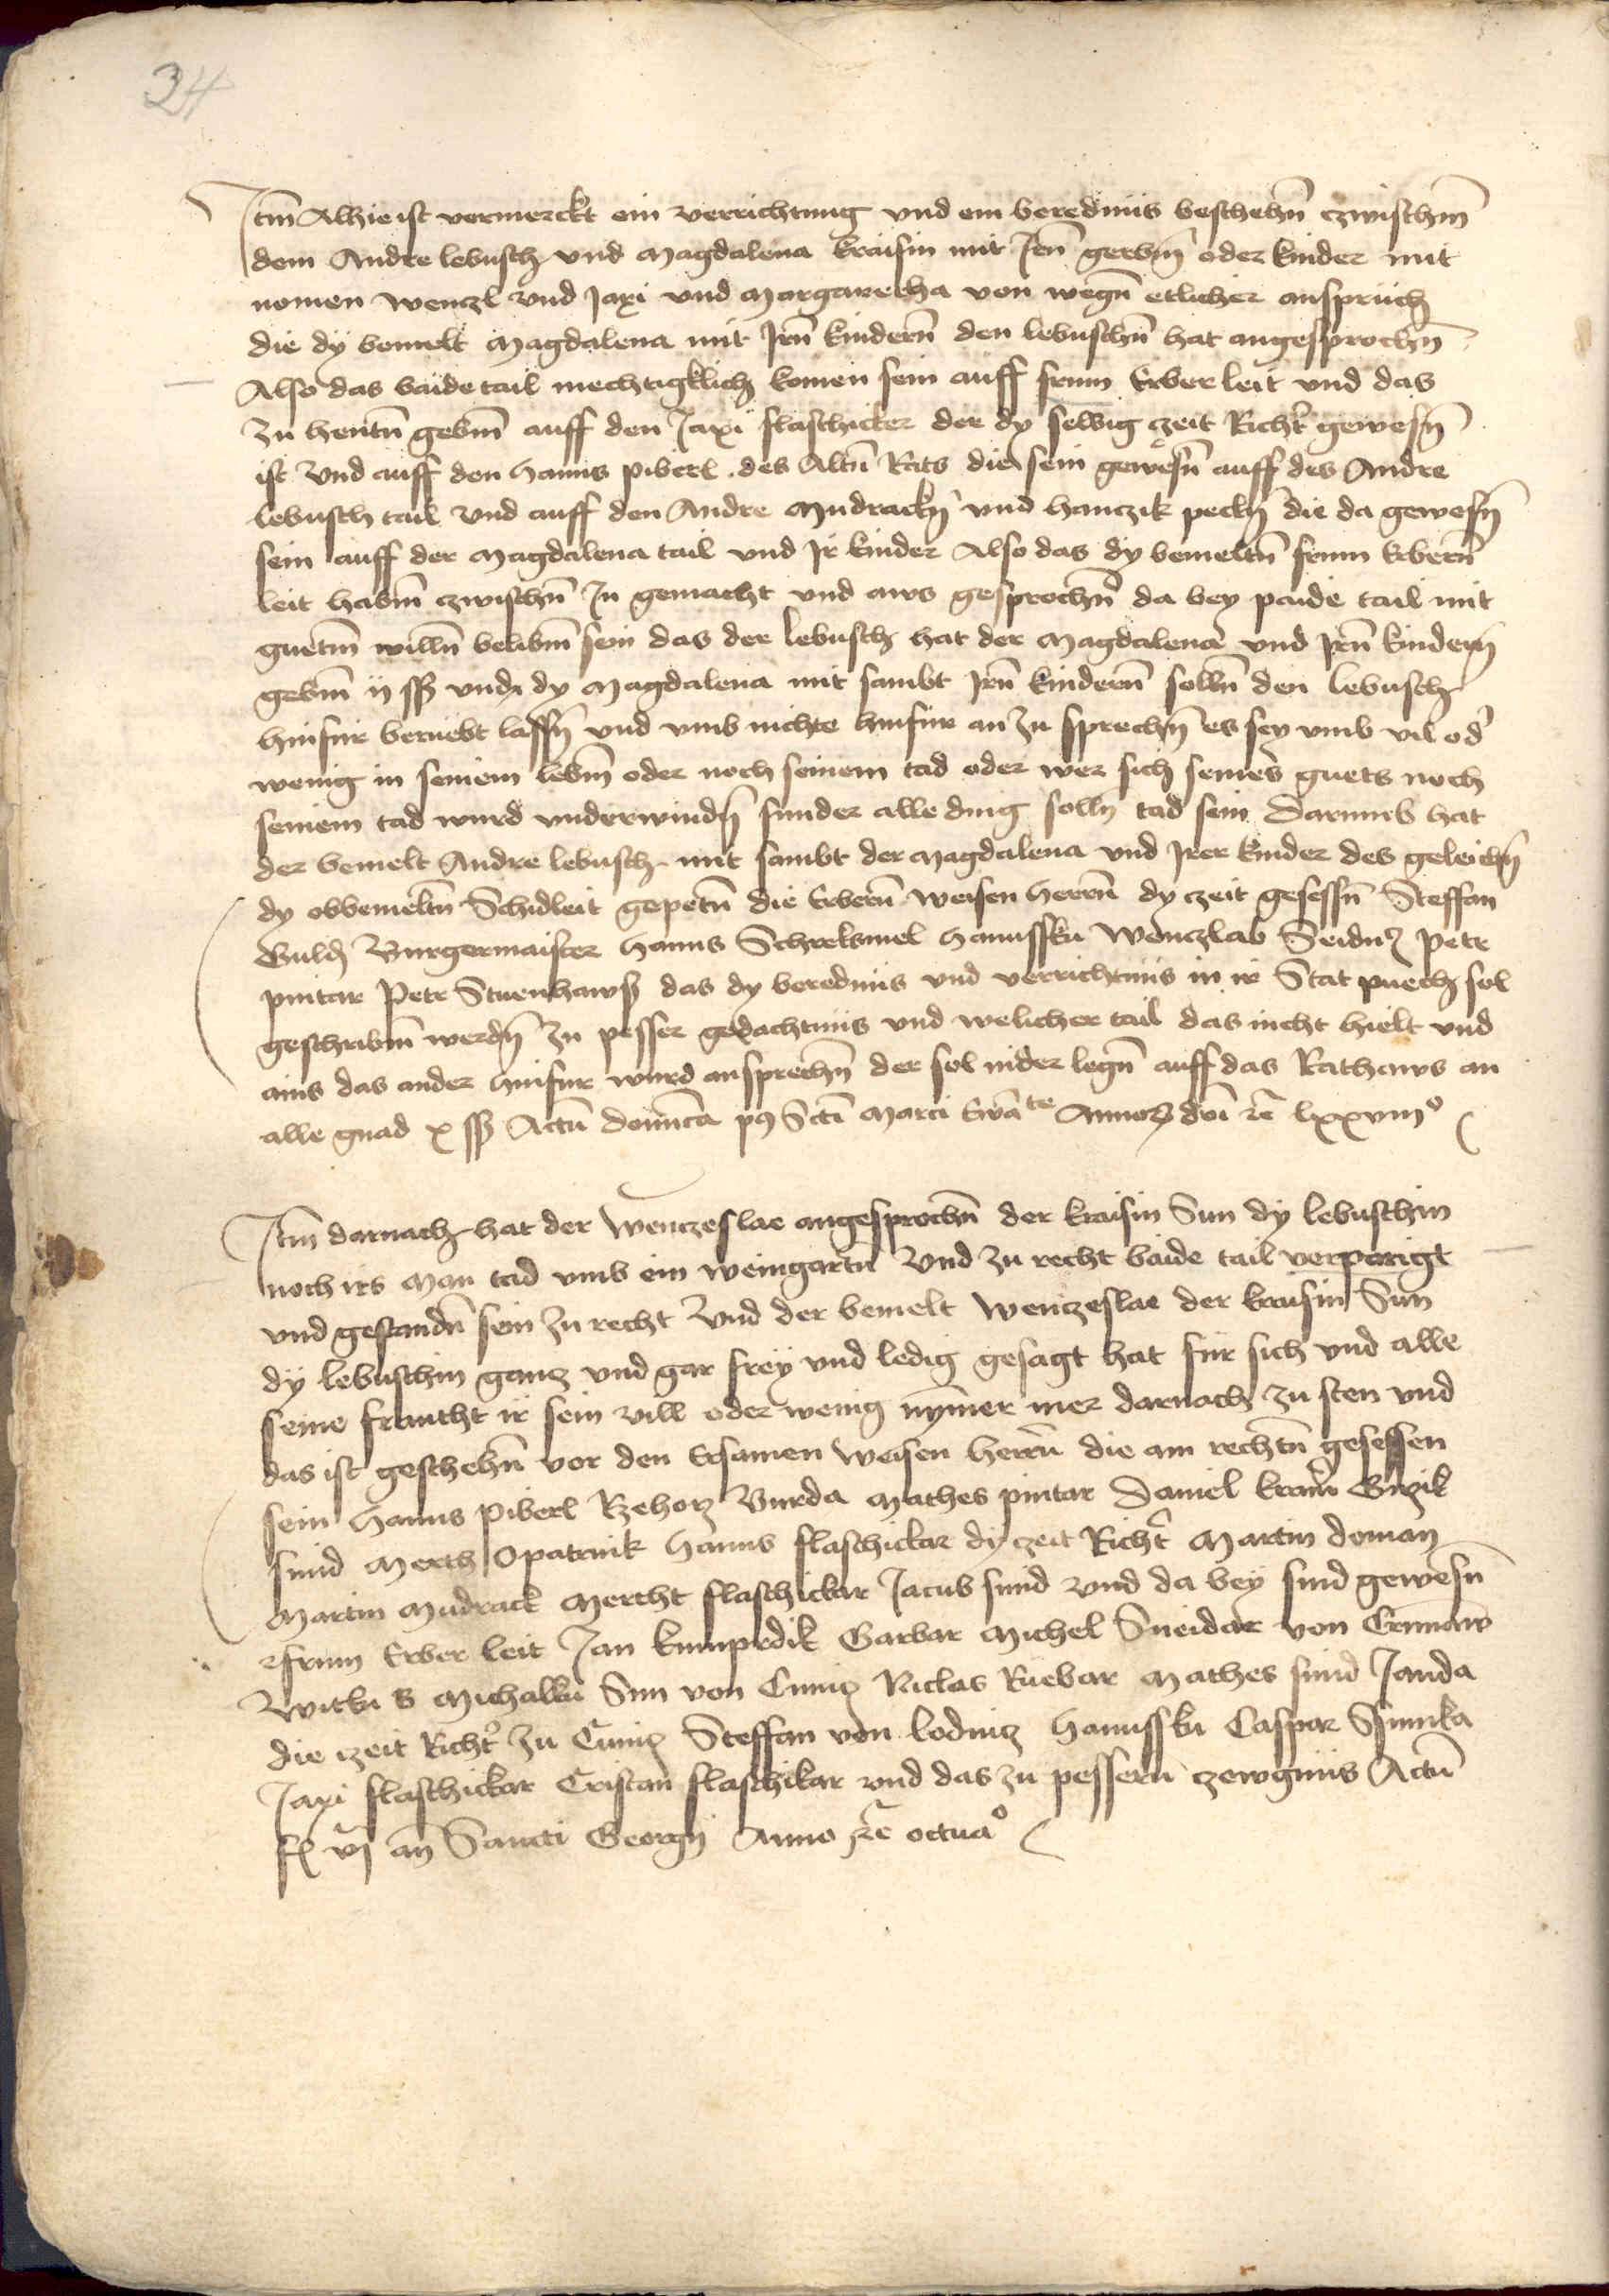 34
Itm Alhie ist vermerckt ein verrichtung vnd ein berednüs beschehn̄ czwischm̄
dem Andre lebusch vnd Magdalena kraisin mit Irn̄ gerbm̄ oder kinder mit
nomen Wenczl vnd Jaxi vnd Margaretha von wegn̄ etlicher anspruch
die dy bemelt Magdalena mit Irn̄ kindern̄ den lebuschn̄ hat angesprochn̄
Also das baide tail mechtigklich komen sein auff frum Erber leit vnd das
zu hentn̄ gebm̄ auff den Jaxi flaschicker der dy selbig czeit Richt̄ gewesn̄
ist Vnd auff den hanns piberl des Altn̄ Rats die sein gewesn̄ auff des Andre
lebusch tail vnd auff den Andre Mudrackn̄ vnd hanczik peckn̄ die da gewesn̄
sein auff der Magdalena tail vnd Ir kinder Also das dy bemeltn̄ frum Erbern̄
leit habm̄ czwischn̄ In gemacht vnd aws gesprochn̄ da bey paide tail mit
guetm̄ willn̄ belibm̄ sein das der lebusch hat der Magdalena vnd Irn̄ kindern̄
gebm̄ ij ss vnd dy Magdalena mit sambt Irn̄ kindern̄ solln̄ den lebusch
hinfur beruebt lassn̄ vnd vmb nichte hinfur an zu sprechn̄ es sey vmb vil od̄
wenig in seinem lebm̄ oder noch seinem tad oder wer sich seines guets noch
seinem tad wurd vnderwindn̄ sunder alle ding solln̄ tad sein Darumb hat
der bemelt Andre lebusch mit sambt der Magdalena vnd Irer kinder des geleichn̄
dy obbemeltn̄ Schidleit gepetn̄ die Erbern̄ weisen herrn̄ dy czeit gesessn̄ Steffan
Burgermaister hanns hanussku Wenczlab Petr
pintar Petr das dy berednüs vnd verrichtnüs in ir Stat puech sol
geschribm̄ werdn̄ zu pesser gedachtnüs vnd welicher tail das nicht hielt vnd
ains das ander hinfur wurd ansprechn̄ der sol nider legn̄ auff das Rathaws an
alle gnad x ss Actū dominca Sctī Marci Annor dnī lxxviiiº
Itm darnach hat der Wenczeslae angesprochn̄ der kraisin Sun dy lebuschin
noch irs Man tad vmb ein weingartn̄ Vnd zu recht baide tail verparigt
vnd gestandn̄ sein zu recht Vnd der bemelt Wenczeslae der kraisin Sun
dy lebuschin gancz vnd gar frey vnd ledig gesagt hat für sich vnd alle
seine frauntht ir sein vill oder wenig nȳmer mer darnach zu sten vnd
das ist geschehn̄ vor den Ersamen weisen herrn̄ die am rechtn̄ gesessen
sein hanns piberl Rzehorz Burda Mathes pintar Daniel
smid Merth Opatrnik hanns flaschickar dy czeit Richt̄ Martin doman
Martin Mudrack Mertht flaschickar Jacub smid vnd da bey sind gewesn̄
frum Erber leit Jan Garbar Michel Sneidar von
Michalku Sun von Niclas Ruebar Mathes smid Janda
die czeit Richt̄ zu Steffan von lodnicz hanussku Caspar
Jaxi flaschickar Cristan flaschikar vnd das zu pessern̄ czewgnüs Actū
Sancti Georgij Anno octuaº